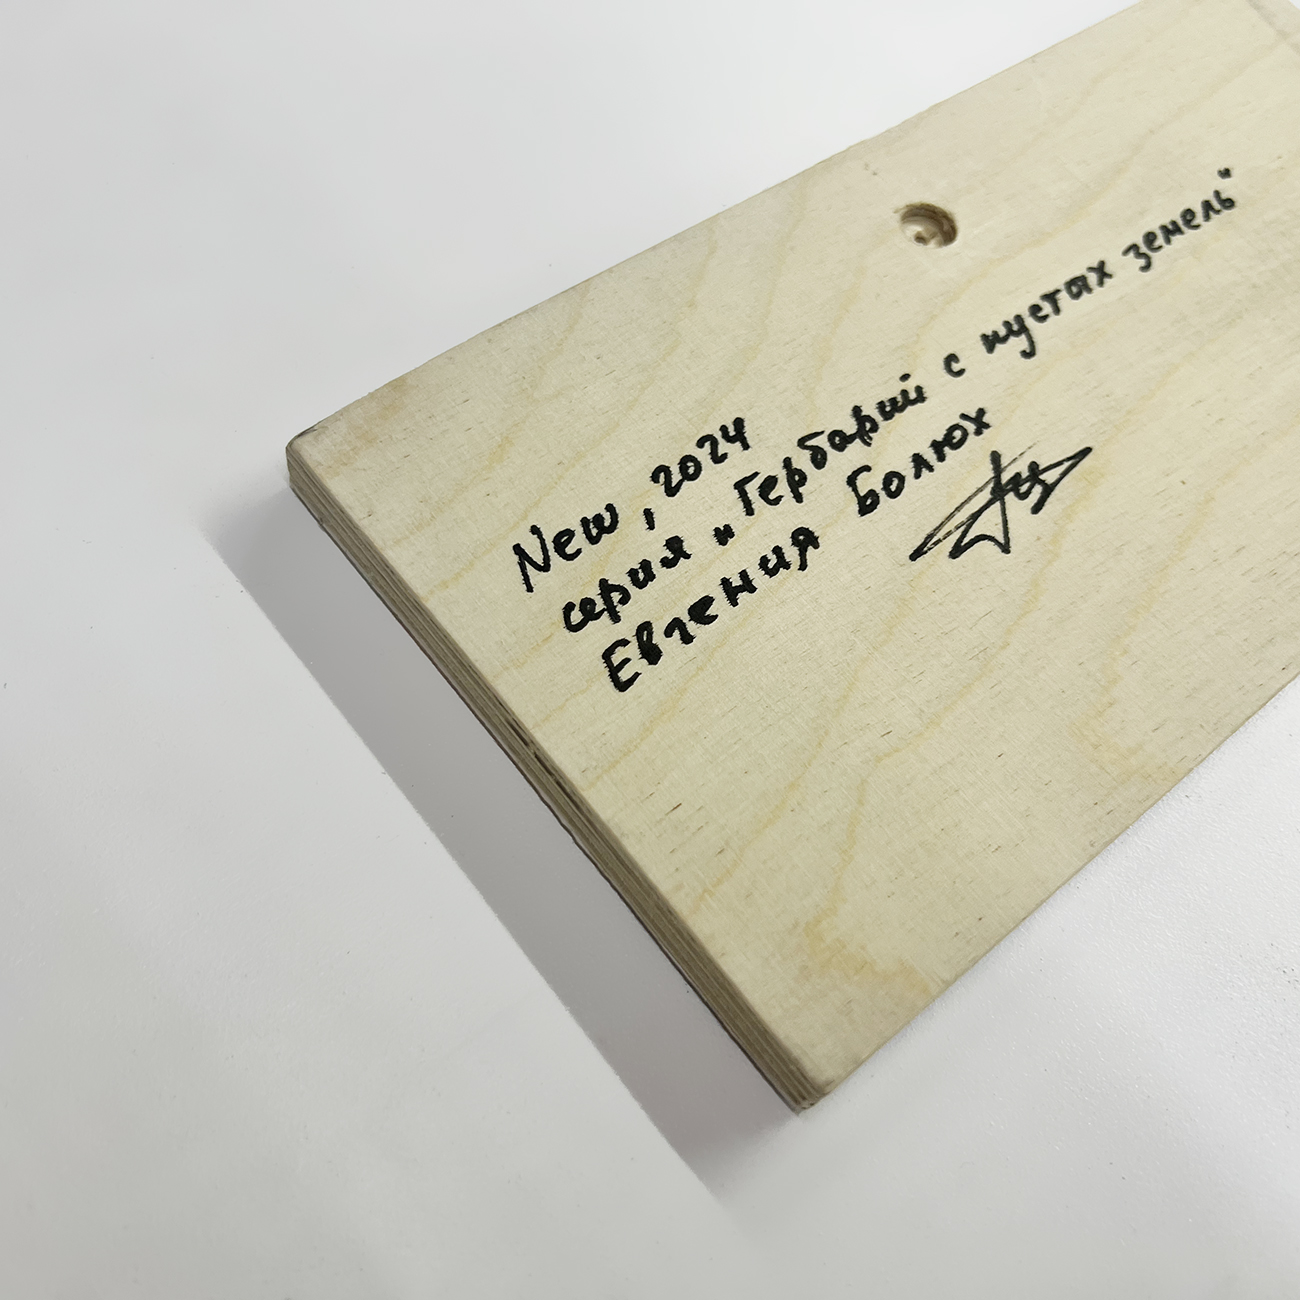 New, 2024
серия „Гербарий с пустых земель"
Евгения Болюх